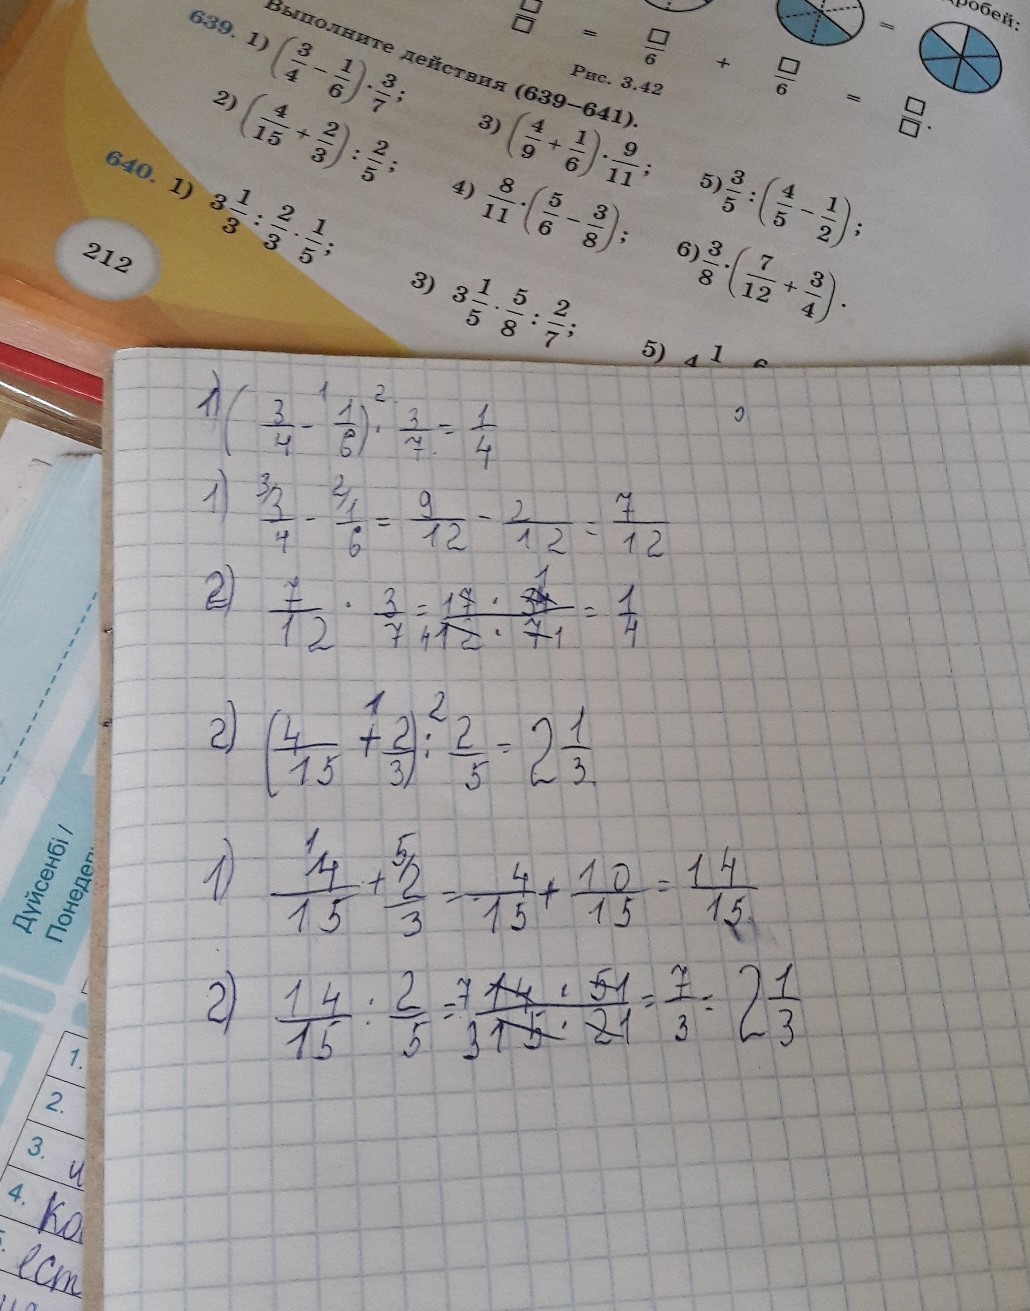 робей:
□/□ = □/6 + □/6 = □/□.
Рис. 3.42
Выполните действия (639–641).
639. 1) (3/4 − 1/6) · 3/7;
2) (4/15 + 2/3) : 2/5;
3) (4/9 + 1/6) · 9/11;
4) 8/11 · (5/6 − 3/8);
5) 3/5 : (4/5 − 1/2);
6) 3/8 · (7/12 + 3/4).
640. 1) 3 1/3 : 2/3 · 1/5;
3) 3 1/5 · 5/8 : 2/7;
5) 4 1
212
1) (3/4 −¹ 1/6) ·² 3/7 = 1/4
1) ³3/4 − ²1/6 = 9/12 − 2/12 = 7/12
2) 7/12 · 3/7 = 17 · 31/412 · 71 = 1/4
2) (4/15 +¹ 2/3) :² 2/5 = 2 1/3
1) ¹4/15 + ⁵2/3 = 4/15 + 10/15 = 14/15
2) 14/15 : 2/5 = 714 · 51/315 · 21 = 7/3 = 2 1/3
Дүйсенбі /
Понедель
1.
2.
3. и
4. Ко
ест